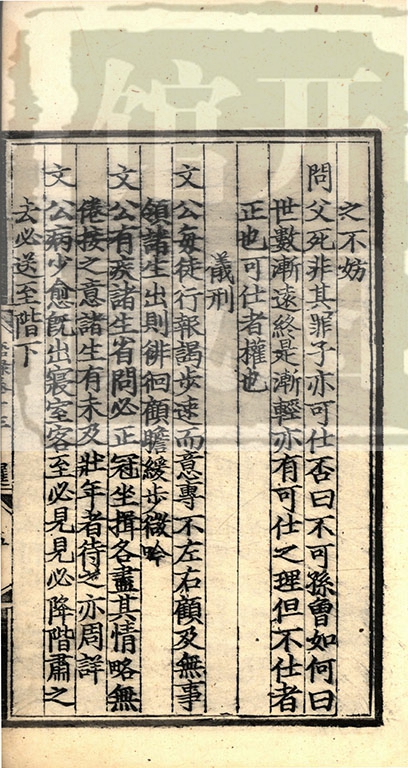 之不妨
問父死非其罪子亦可仕否曰不可孫曾如何曰
世數漸遠終是漸輕亦有可仕之理但不仕者
正也可仕者權也
儀刑
文公每徒行報謁步速而意專不左右顧及無事
領諸生出則徘徊顧瞻緩步微吟
文公有疾諸生省問必正冠坐揖各盡其情略無
倦接之意諸生有未及壯年者待之亦周詳
文公病少愈旣出寢室客至必見見必降階肅之
去必送至階下